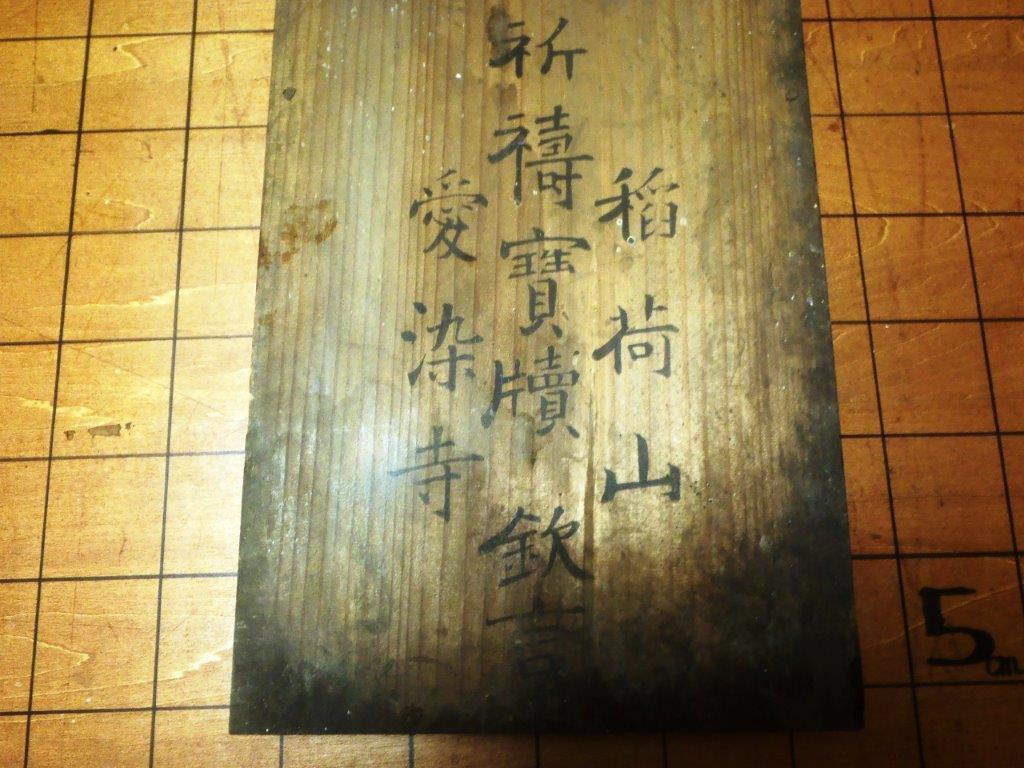 稻荷山
祈禱寶牘欽言
愛染寺
5cm